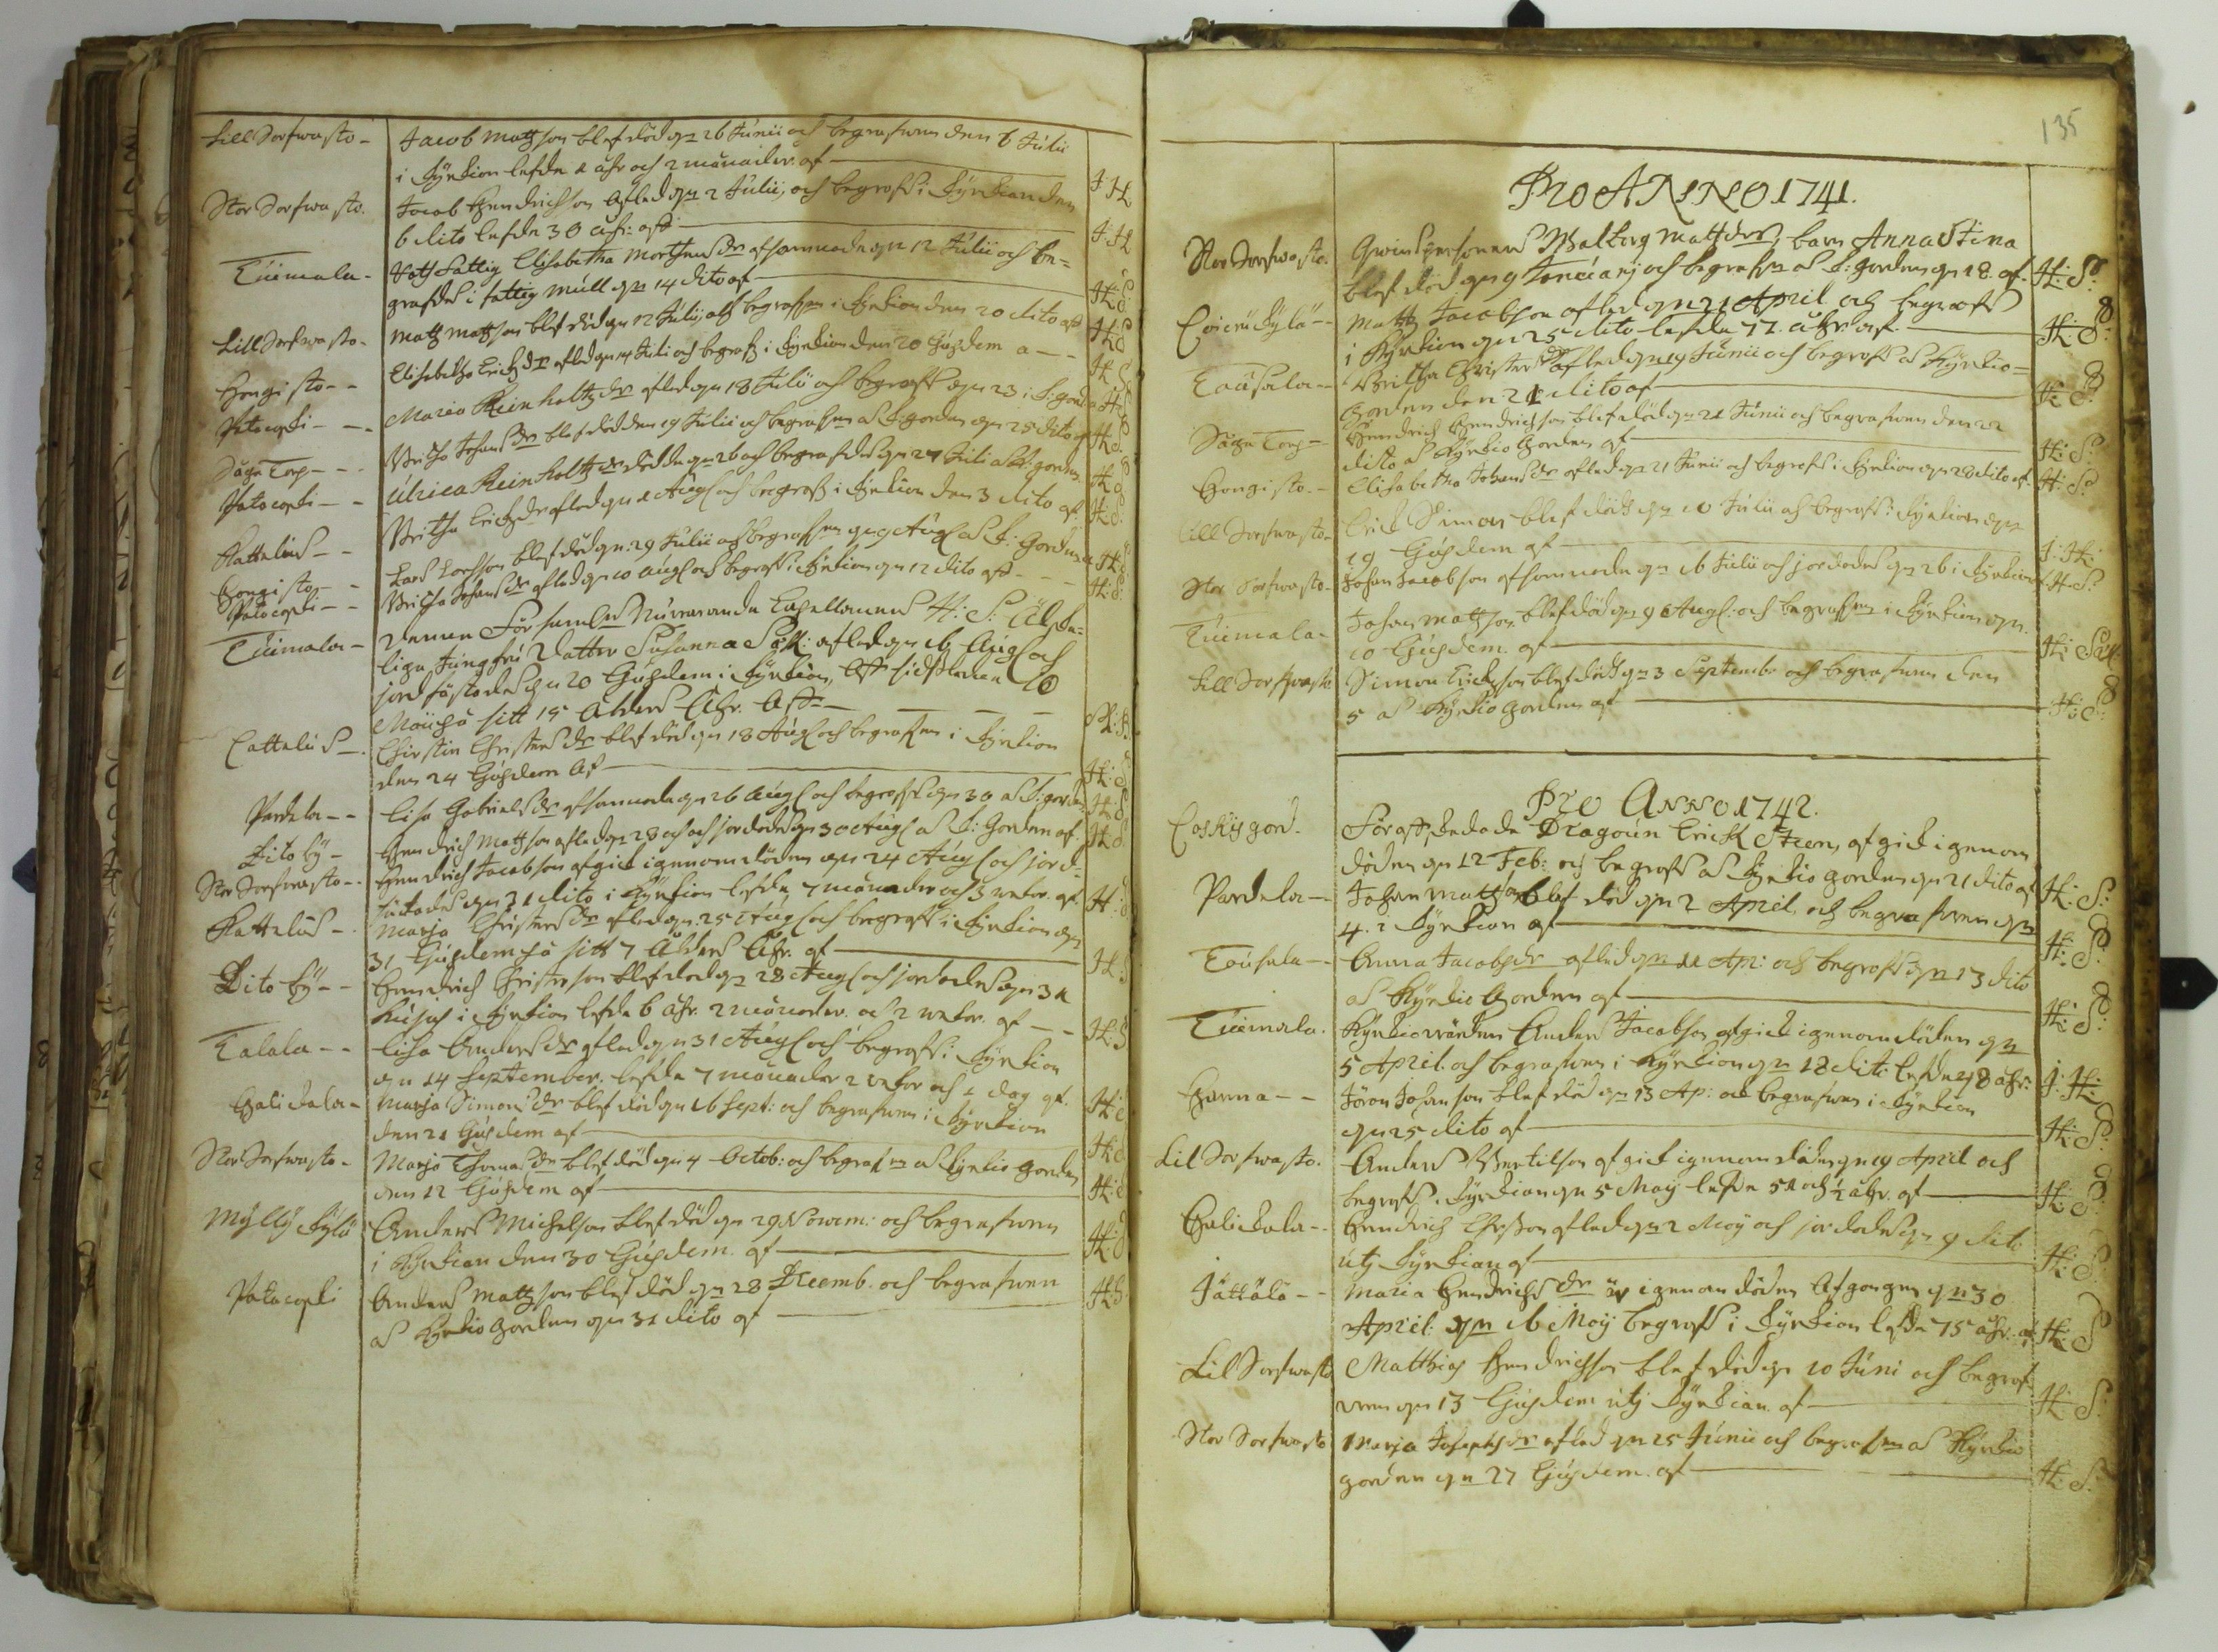 Lill Sorfwasto - Jacob Matzson blef död dn 26 Junii och begrafwen den 6 Julii
i Kyrkion lefde 1 åhr och 2 månader. af — J H
Stor Sorfwasto. Jacob Hendrichson Afled dn 2 Julii, och begrofs i Kyrkian den
6 dito lefde 30 åhr: af — J. H
Tuimala - Fattig Elisabetha Mortens dr afsomnade dn 12 Julii och be=
grafdes i fattig mull dn 14 dito af — H: S
Lill Sorfwasto - Matz Matzson blef död dn 12 Julij och begrafn i Kyrkion den 20 dito af H: S
Hongisto - - Elisabetha Erichs dr afled dn 14 Juli och begrofs i Kyrkion den 20 Ejusdem a - - H S
Patacoski - - - Maria Reinholtz dr afled dn 18 Julii och begrofs dn 23 i K: gorden H: S
Såga Torp - - - Britha Johans dr blef död den 19 Julii och begrafn a K: gorden dn 25 dito af H: S
Patacoski - - Ulrica Reinholtz dr dödde dn 26 och begrafdes dn 27 Juli a K: gorden. H S
Kattelus - - Britha Erichs dr afled dn 1 Aug och begrofs i Kyrkion den 3 dito af H: S:
Hongisto - - Lars Larsson blef död dn 29 Julii och begrafn dn 9 Aug a K: Gorden H: S
Patacoski - - Britha Johans dr afled dn 10 Aug och begrofs i Kyrkion dn 12 dito af - - - H: S:
Tuimala - Denna Församln Capellanens H: S: Älske=
liga Jungfru Datter Susanna afled dn 16 Aug och
jordfästades dn 20 Ejusdem i Kyrkion,
på sitt 15 Ålders Åhr. Af —
Cattelus - . Christin Christers dr blef död dn 18 Aug och begrafn i Kyrkion
den 24 Ejusdem Af — H: S
Pardela - - Lisa Gabriels dr afsomnade dn 26 Aug och begrofs dn 30 a K: gorden H: S
Dito By - Hendrich Matzson afled dn 28 och jordades dn 30 Aug a K: Gorden af H: S
Stor Sorfwasto - . Hendrich Jacobson afgick igenom döden dn 24 Aug och jord=
fästades dn 31 dito i Kyrkion lefde 7 månader och 3 wekor. af H: S
Kattelus - . Marja Christers dr afled dn 25 Aug och begrofs i Kyrkion dn
31 Ejusdem på sitt 7 Ålders Åhr. af — H: S
Dito By - - Hendrich Christerson blef död dn 28 Aug och jordades dn 31
i Kyrkion lefde 6 åhr. 2 månader. och 2 wekor. af - - H: S
Talala - - Lisa Anders dr afled dn 31 Aug och begrofs i Kyrkion
dn 14 September. lefde 7 månader 2 wekor och 1 dag af. H: S
Halikala - Marja Simons dr blef död dn 16 Sept: och begrafwen i Kyrkion
den 21 Ejusdem af — H: S
Stor Sorfwasto - Marja Thomas dr blef död dn 4 Octob: och begrafn a Kyrkio gorden
den 12 Ejusdem af — H: S
Mylly Kylä Anders Michelson blef död dn 29 Novem: och begrafwen
i Kyrkian den 30 Ejusdem. af — H: S
Patacoski Anders Matzson blef död dn 28 Decemb. och begrafwen
a Kyrkio gorden dn 31 dito af — H: S
135
Pro ANNO 1741.
Stor Sorfwasto. Walborg Matts dr, barn Anna Stina
blef död dn 9 Januarij och begrafn a K: gorden dn 18. af. H: S:
Matts Jacobson afled dn 21 April och begrofs
i Kyrkion dn 25 dito lefde 77. åhr af. — H: S:
Tausala - - Britha Christers dr afled dn 19 Junii och begrofs a Kyrkio=
gorden den 21 dito af — H: S:
Såga Torp - Hendrich Hendrichson blef död dn 21 Junii och begrafwen den 22
dito a Kyrkio gorden af — H: S:
Hongisto. - Elisabetha Johans dr afled dn 21 Junii och begrofs i Kyrkion dn 28 dito af - H: S:
Lill Sorfwasto - Erik Simon blef död dn 10 Julii och begrofs i Kyrkion dn
19 Ejusdem af — J: H:
Stor Sorfwasto - Johan Jacobson afsomnade dn 16 Julii och jordades dn 26 i Kyrkion H: S:
Tuimala - Johan Matzson blef död dn 9 Aug: och begrafn i Kyrkion dn
10 Ejusdem. af — H:
Lill Sorfwasto Simon Erichson blef död dn 3 Septemb: och begrafwen den
5 a Kyrkio gorden af — H: S:
Pro ANNO 1742.
Coskis gord. Förafskedade Dragoun Erich Steen, afgick igenom
döden dn 12 Feb: och begrofs a Kyrkio gorden dn 21 dito af H: S:
Pardela - - Johan Mattson blef död dn 2 April, och begrafwen dn
4. i Kyrkion af — H: S:
Tausala - - Anna Jacobs dr afled dn 11 Apr: och begrofs dn 13 dito
a Kyrkio Gorden af — H: S:
Tuimala. Kyrkiowärden Anders Jacobson afgick igenom döden dn
5 April. och begrafwen i Kyrkion dn 18 dito lefde 78 åhr: J: H:
Hanna - - Jöran Johanson blef död dn 13 Ap: och begrafwen i Kyrkion
dn 25 dito af — H: S:
Lil Sorfwasto. Anders Bertilson afgick igenom döden dn 19 April och
begrofs i Kyrkian dn 5 Maij lefde 51 och ½ åhr. af — H: S:
Halikala - - Hendrich afled dn 2 Maij och jordades dn 9 dito
utj Kyrkian af — H: S:
Jättälä - - Maria Hendrichs dr är igenom döden Afgangen dn 30
April: dn 16 Maij begrofs i Kyrkion lefde 75 åhr. af H: S
Lil Sorfwasto Matthias Hendrichson blef död dn 10 Juni och begraf
wen dn 13 Ejusdem utj Kyrkian. af — H: S:
Stor Sorfwasto Marja Josephs dr afled dn 25 Junii och begrafn a Kyrkio
gorden dn 27 Ejusdem. af — H: S: